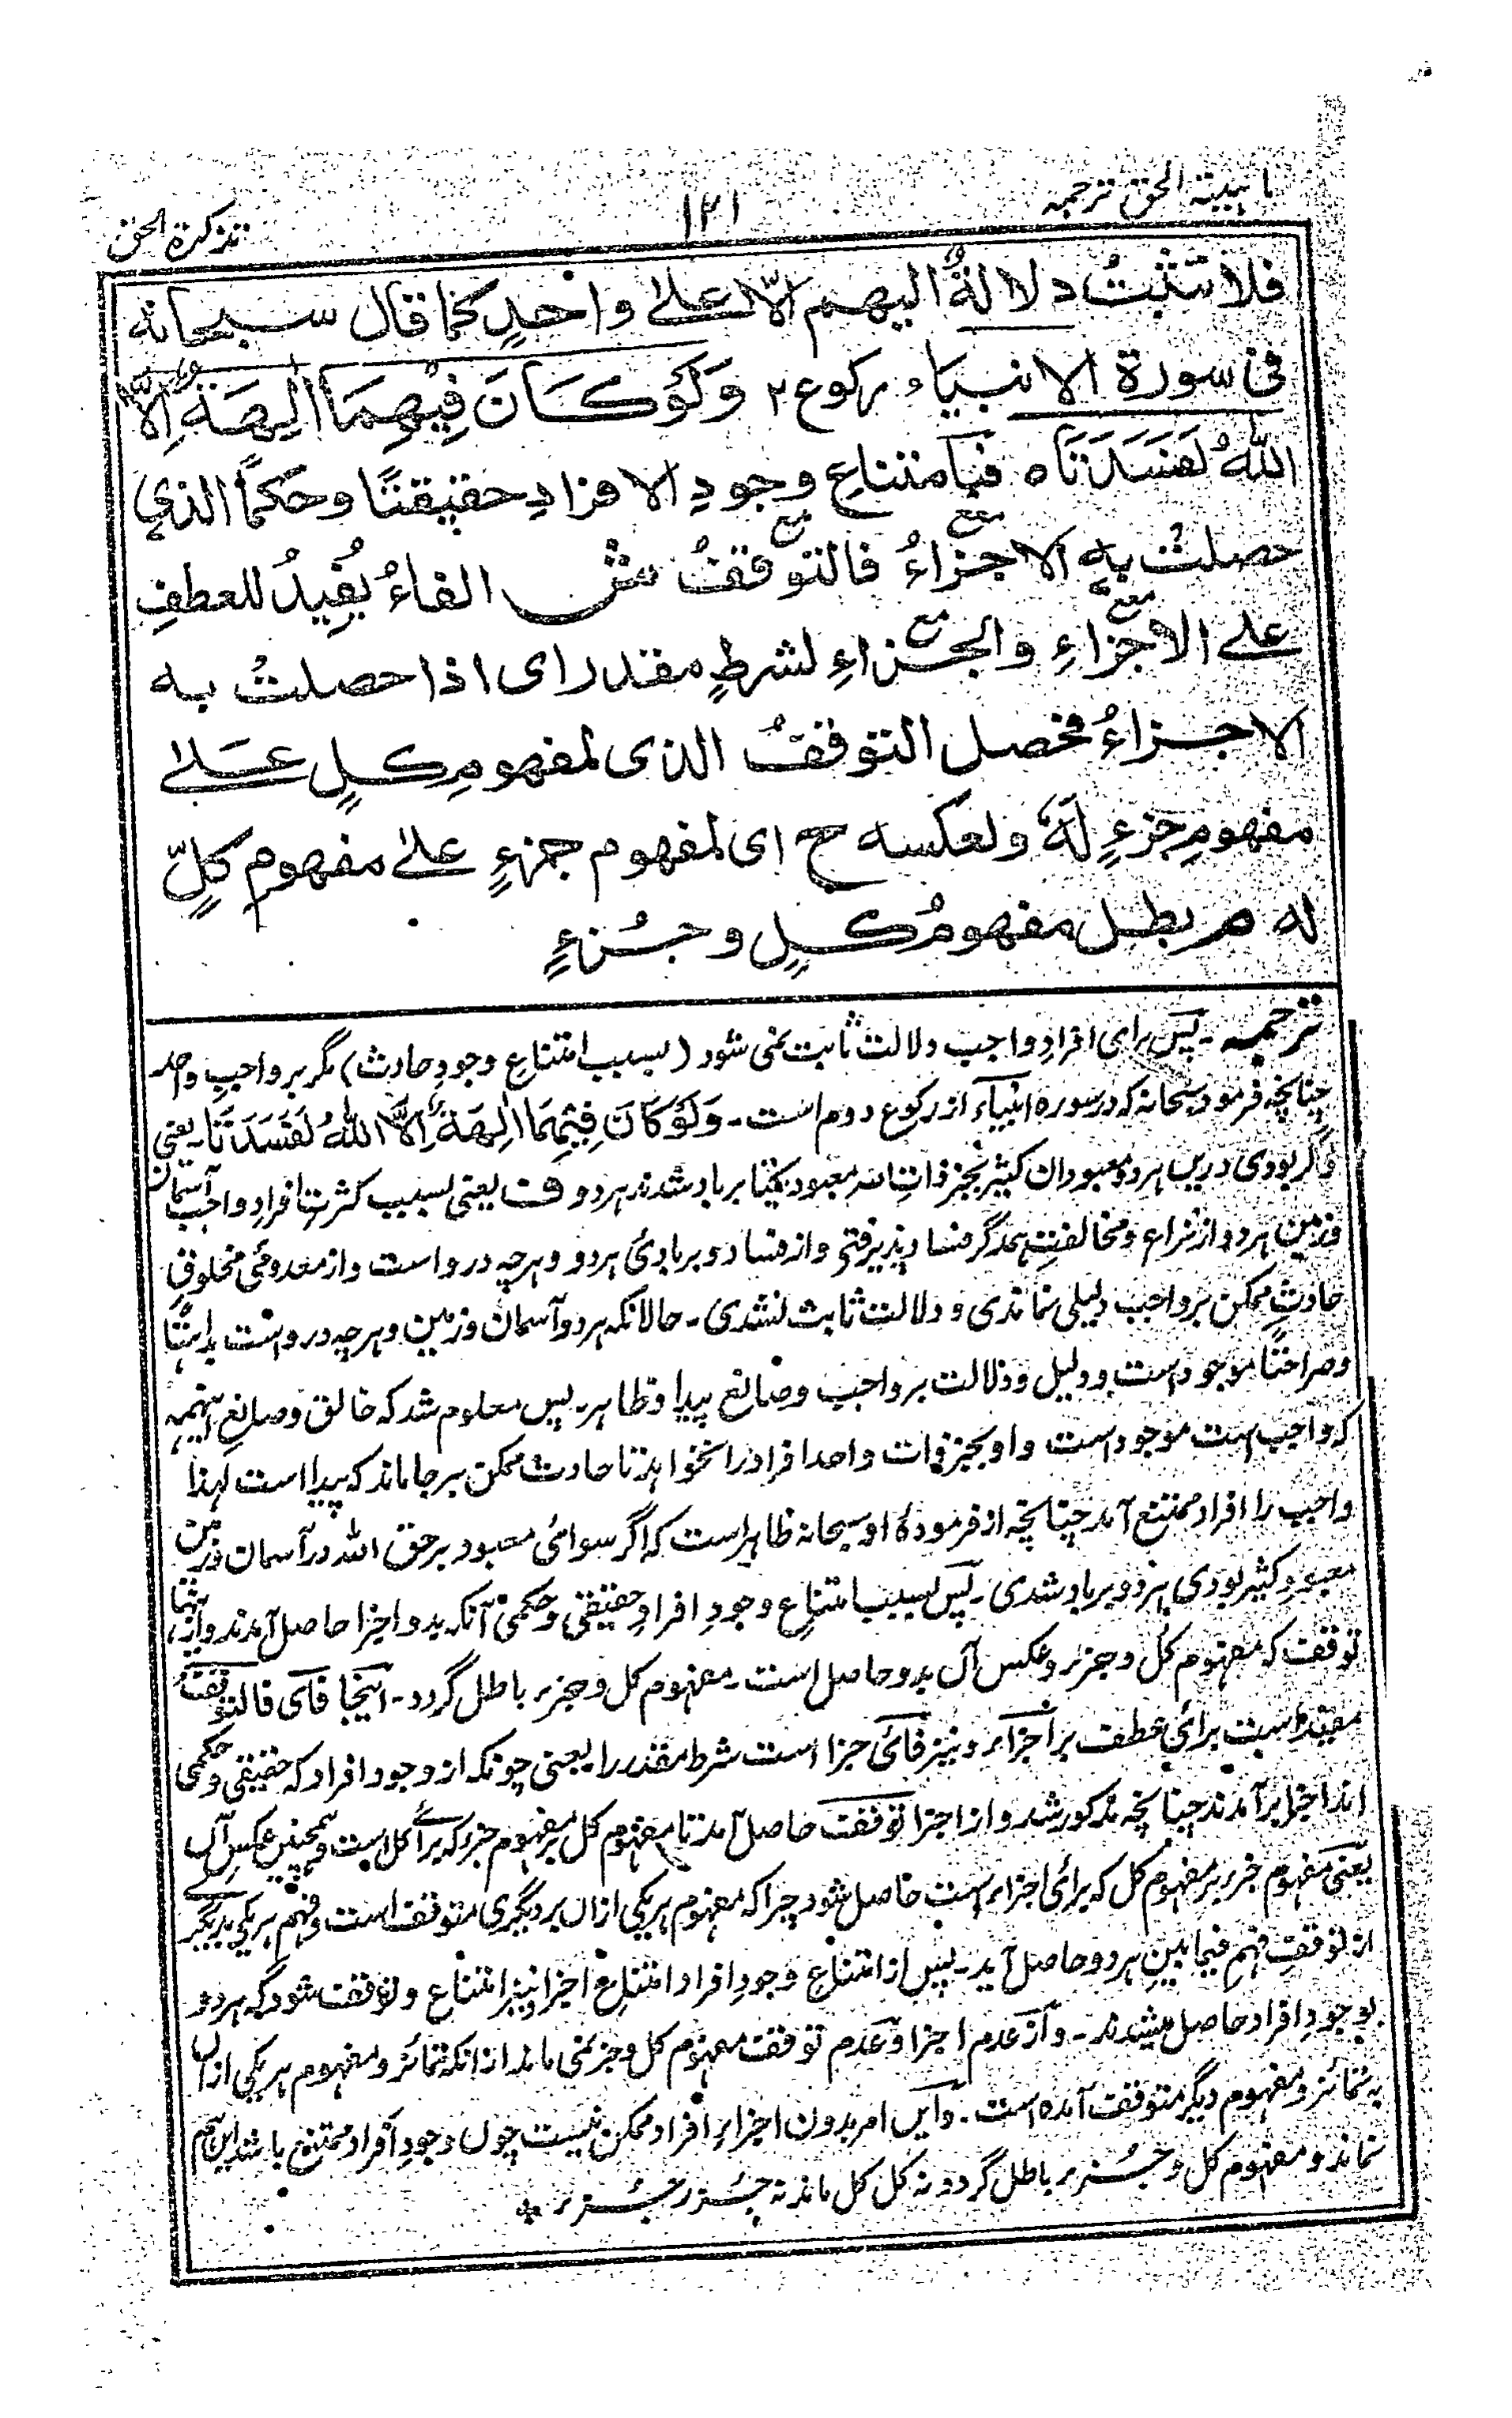 الحق ترجمہ
۱۲۱
تذکرة الحق
فلا تثبتُ دلالةٌ اليهم الّا علىٰ واحدٍ كما قال سبحانه
فی سورة الانبیاء رکوع ۲ وَلَوْ كَانَ فِيْهِمَا اٰلِهَةٌ اِلَّا
اللّٰهُ لَفَسَدَتَا ه فبامتناع وجودِ الافرادِ حقيقتًا وحكمًا الذی
حصلتْ به الاجزاءُ فالتوقفُ ش الفاءُ يفيدُ للعطفِ
على الاجزاءِ والجزاءِ لشرطٍ مقدر ای اذا حصلتْ به
الاجزاءُ فحصل التوقفُ الذی لمفهومِ كلٍ علىٰ
مفهومِ جزءٍ لَهٗ ولعكسه ح ای لمفهوم جزءٍ علىٰ مفهومِ كلٍّ
له م بطل مفهومُ كلٍ و جزءٍ
ترجمہ ۔ پس برای افرادِ واجب دلالت ثابت نمی شود (بسبب امتناع وجودِ حادث) مگر بر واجبِ واحد
چنانچہ فرمود سبحانہ کہ در سورہ انبیاء از رکوع دوم است ۔ وَلَوْ كَانَ فِيْهِمَا اٰلِهَةٌ اِلَّا اللّٰهُ لَفَسَدَتَا ۔ یعنی
و اگر بودی درین ہردو معبودان کثیر بجز ذات اللہ معبود یکتا برباد شدند ہردو ف یعنی بسبب کثرت افرادِ واجب آسمان
و زمین ہردو از نزاع و مخالفتِ ہمدگر فساد پذیرفتی و از فساد و بربادئ ہردو و ہرچہ درو است و از معدومئ مخلوق
حادثِ ممکن بر واجب دلیلی نماندی و دلالت ثابت نشدی ۔ حالانکہ ہردو آسمان و زمین و ہرچہ دروست بداہتًا
و صراحتا موجود است و دلیل و دلالت بر واجب و صانع پیدا و ظاہر ۔ پس معلوم شد کہ خالق و صانع اینہمہ
کہ واجب است موجود است و او بجز ذات واحد افراد را نخواہد تا حادث ممکن برجا ماند کہ پیدا است لہذا
واجب را افراد ممتنع آمد چنانچہ از فرمودۂ او سبحانہ ظاہر است کہ اگر سوائی معبود برحق اللہ در آسمان و زمین
معبود کثیر بودی ہردو برباد شدی ۔ پس بسبب امتناع وجودِ افرادِ حقیقی و حکمی آنکہ بدو اجزا حاصل آمدند و از اینہا
توقف کہ مفہوم کل و جزء و عکس آں بدو حاصل است ۔ مفہوم کل و جزء باطل گردد ۔ اینجا فای فالتوقف
مفید است برائ عطف بر اجزاء و نیز فائ جزا است شرط مقدر را یعنی چونکہ از وجود افراد کہ حقیقی و حکمی
اند اجزا برآمدند چنانچہ مذکور شد و از اجزا توقف حاصل آمد تا مفہوم کل بر مفہوم جزء کہ برائ کل است و ہمچنین عکس آں
یعنی مفہوم جزء بر مفہوم کل کہ برائ اجزاء است حاصل شود چراکہ مفہوم ہریکی ازاں بر دیگری متوقف است و فہم ہریکی بدیگری
از توقف فہم فیما بین ہردو حاصل آید ۔ پس از امتناع وجودِ افراد امتناع اجزا نیز امتناع و توقف شود کہ ہردو
بوجودِ افراد حاصل میشدند ۔ و از عدم اجزا و عدم توقف مفہوم کل و جز نمی ماند ازانکہ تمائز و مفہوم ہریکی ازاں
بہ تمائز و مفہوم دیگر متوقف آمدہ است ۔ و ایں امر بدون اجزاءِ افراد ممکن نیست چوں وجودِ افراد ممتنع باشد این ہم
نماند و مفہوم کل و جزء باطل گردد نہ کل کل ماند نہ جزء جزء